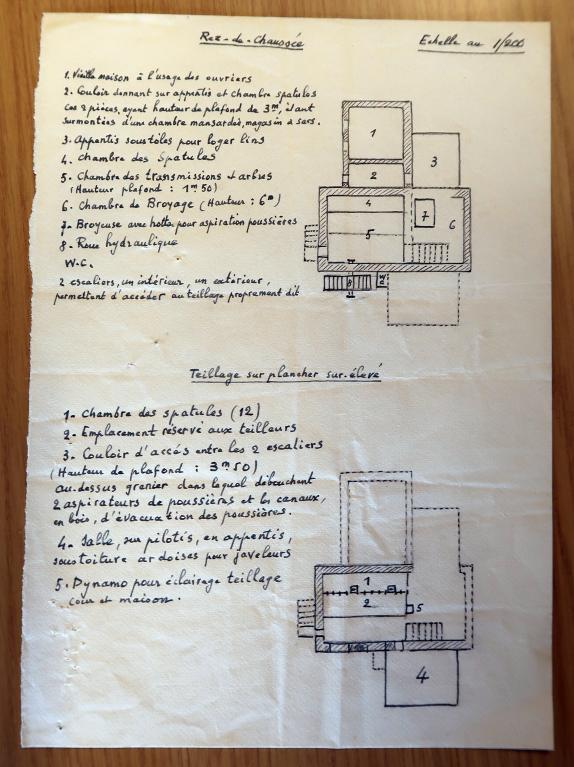 Rez-de-Chaussée
Echelle au 1/200
1. Vieille maison à l'usage des ouvriers
2. Couloir donnant sur appentis et chambre spatules
Ces 2 pièces, ayant hauteur de plafond de 3m, étant
surmontées d'une chambre mansardée, magasin à sacs.
3. Appentis sous tôles pour loger lins
4. Chambre des Spatules
5. Chambre des transmissions et arbres
(Hauteur plafond : 1m50)
6. Chambre de Broyage (Hauteur : 6m)
7. Broyeuse avec hotte pour aspiration poussières
8. Roue hydraulique
W.C.
2 escaliers, un intérieur, un extérieur,
permettent d'accéder au teillage proprement dit
1
2
3
4
5
6
7
8
W.C
Teillage sur plancher sur-élevé
1- Chambre des spatules (12)
2- Emplacement réservé aux teilleurs
3. Couloir d'accés entre les 2 escaliers
(Hauteur de plafond : 3m50)
au-dessus grenier dans lequel débouchent
2 aspirateurs de poussières et les canaux,
en bois, d'évacuation des poussières.
4- Salle, sur pilotis, en appentis,
sous toiture ardoises pour javeleurs
5. Dynamo pour éclairage teillage
cour et maison.
1
2
5
4